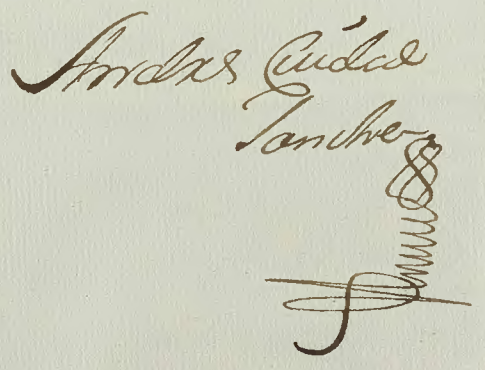 Andres Ciudad
Sanchez